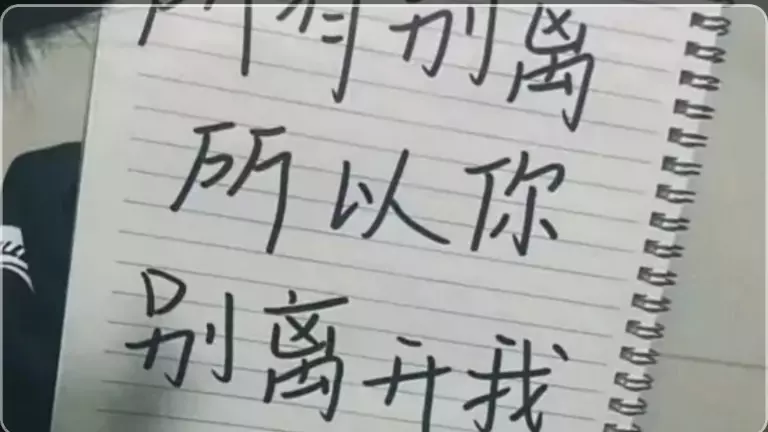 所有别离
所以你
别离开我